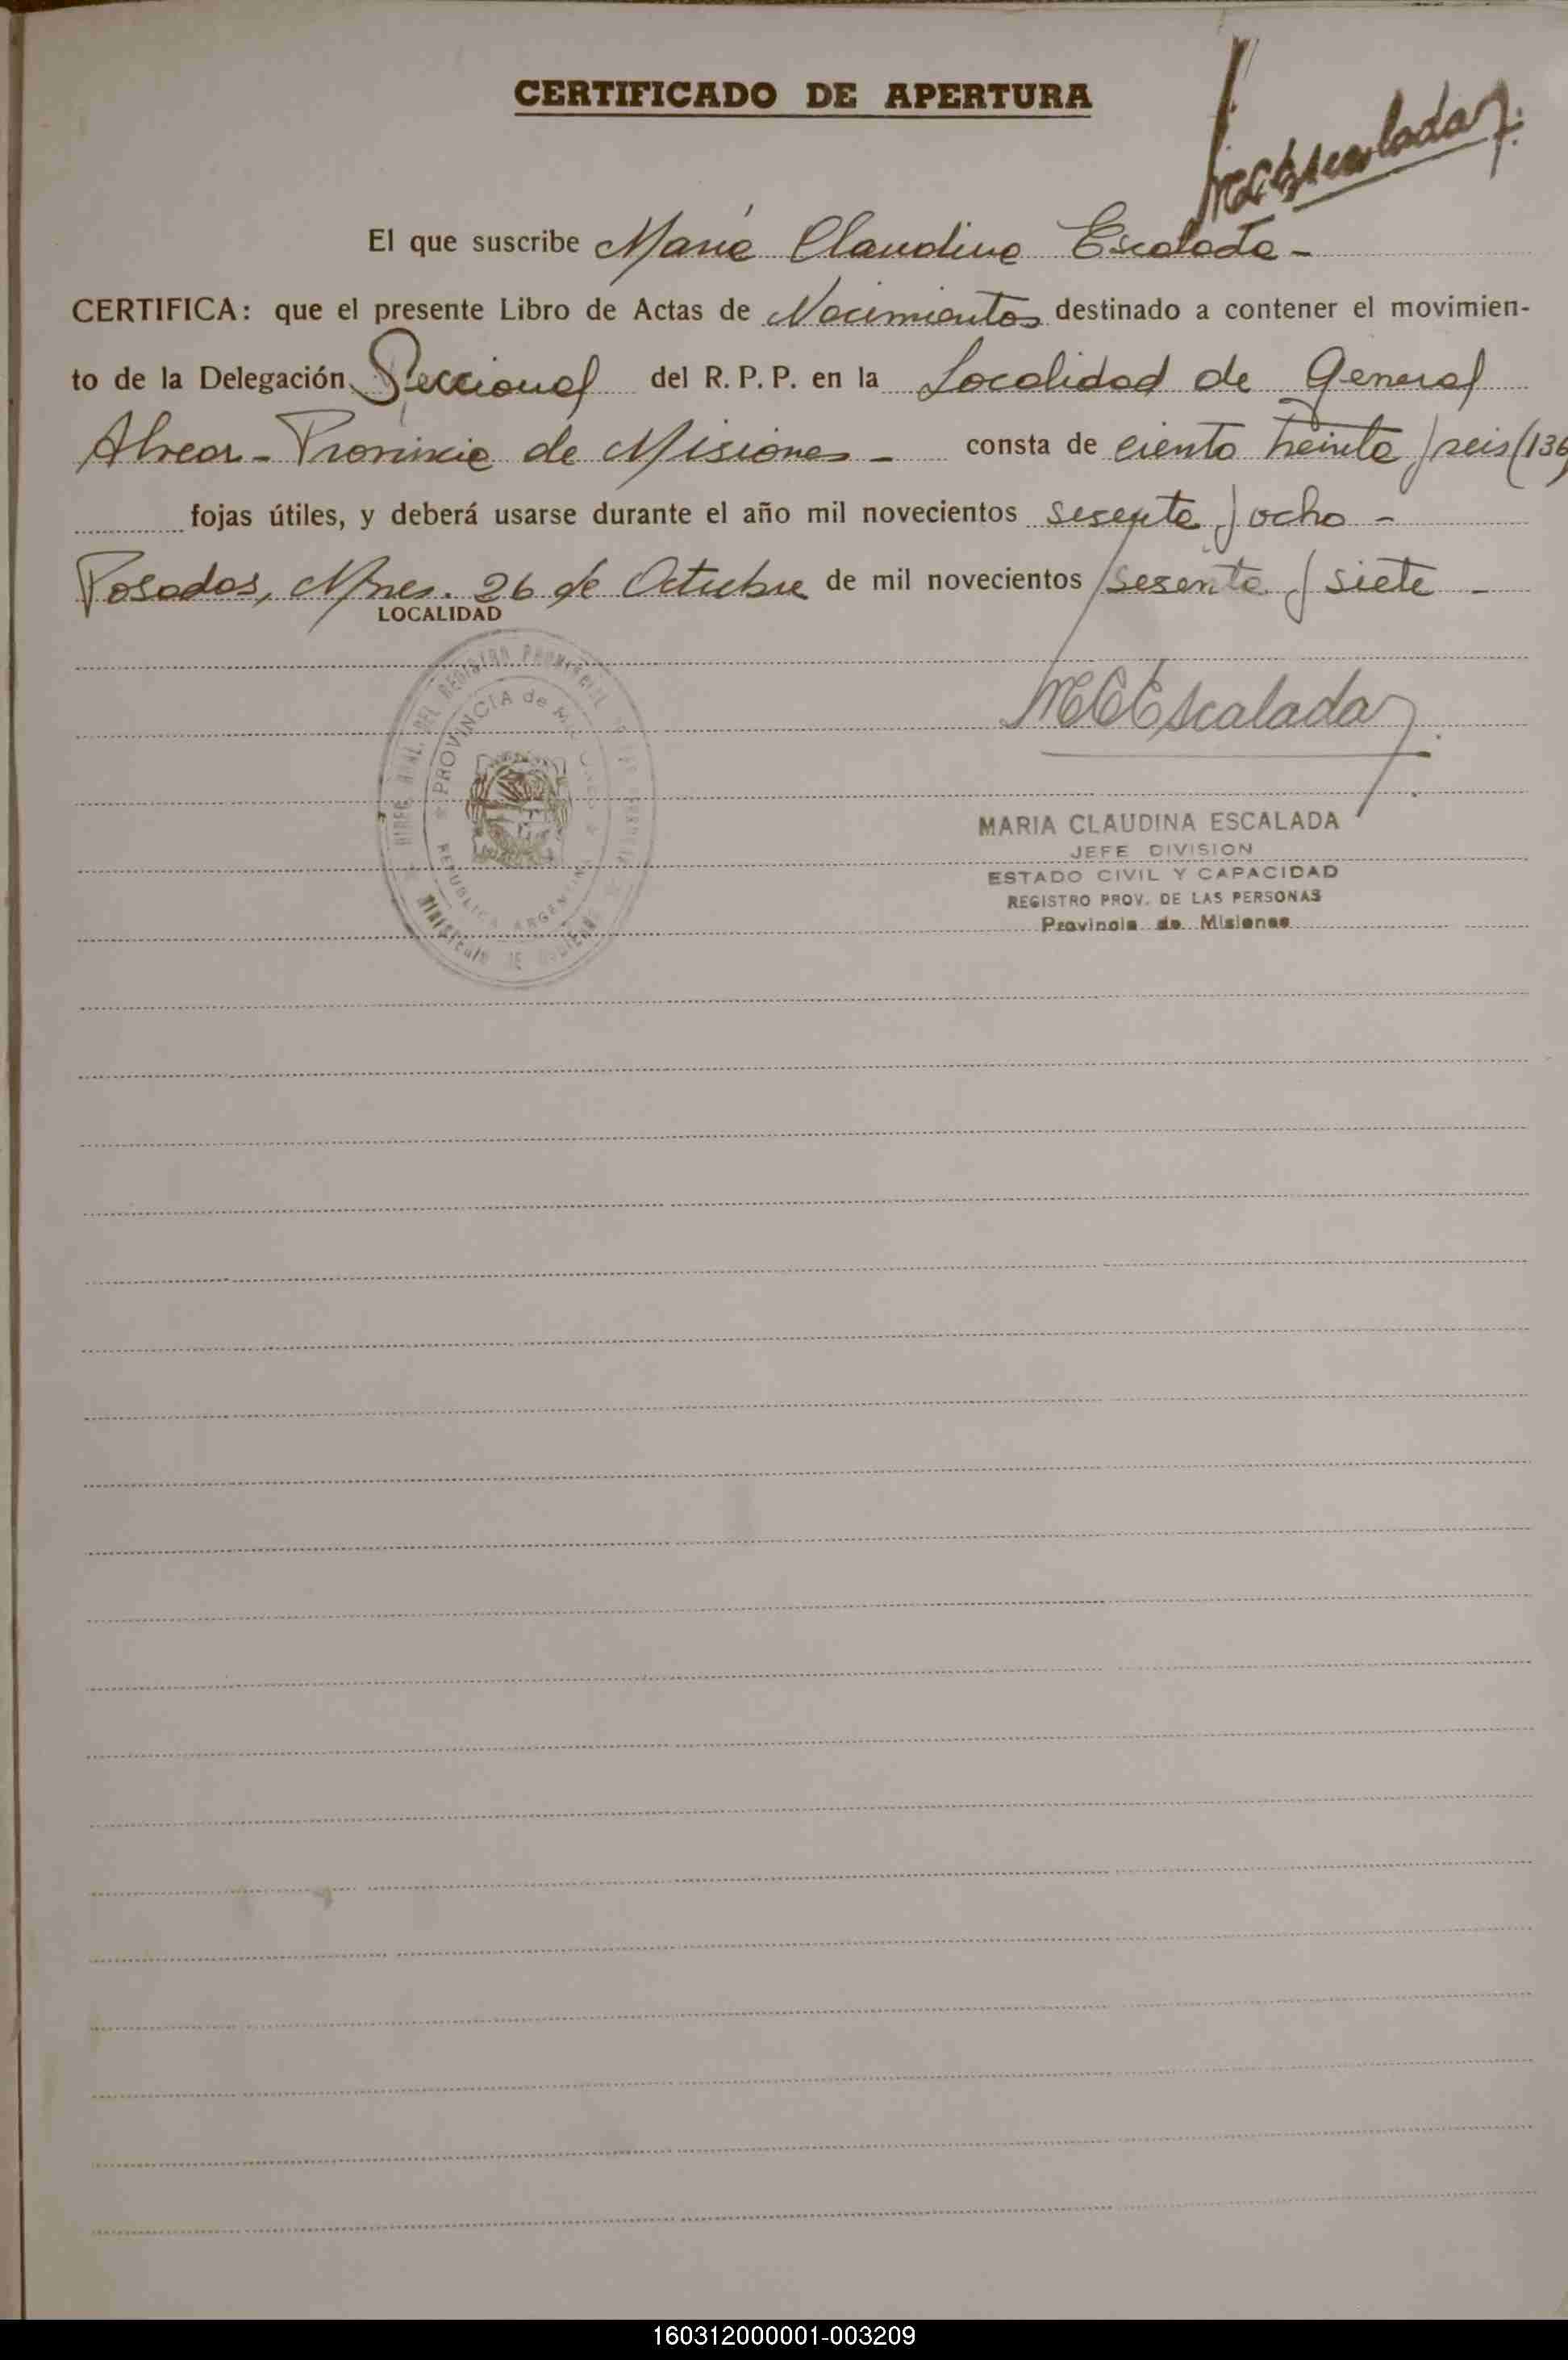 CERTIFICADO DE APERTURA
MCEscalada
El que suscribe María Claudina Escalada -
CERTIFICA: que el presente Libro de Actas de Nacimientos destinado a contener el movimien-
to de la Delegación Seccional del R. P. P. en la Localidad de General
Alvear - Provincia de Misiones - consta de ciento treinta y seis (136
fojas útiles, y deberá usarse durante el año mil novecientos sesenta y ocho -
Posadas, Mnes. 26 de Octubre de mil novecientos sesenta y siete -
LOCALIDAD
MCEscalada
DIREC. GRAL. DEL REGISTRO PROVINCIAL DE LAS PERSONAS
PROVINCIA de MISIONES
REPUBLICA ARGENTINA
MARIA CLAUDINA ESCALADA
JEFE DIVISION
ESTADO CIVIL Y CAPACIDAD
REGISTRO PROV. DE LAS PERSONAS
Provincia de Misiones
160312000001-003209